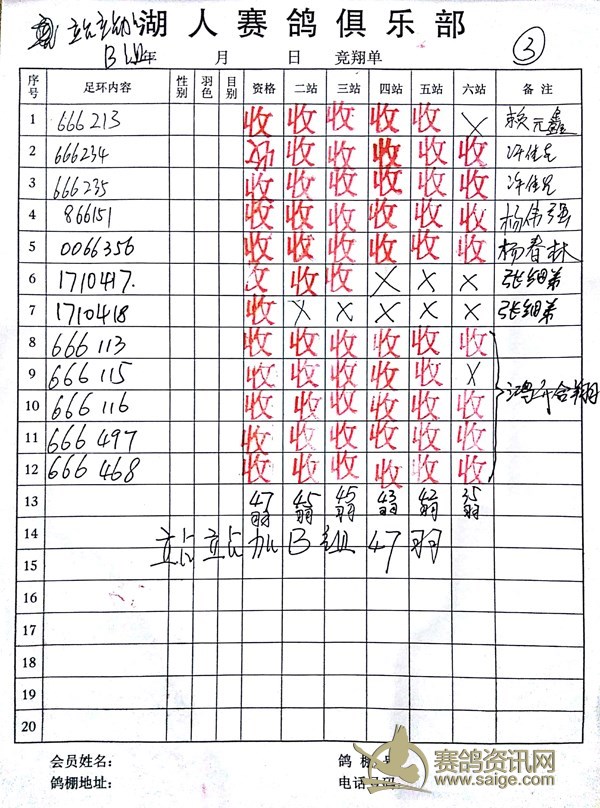 站站加 湖人赛鸽俱乐部
B组 年 月 日 竞翔单 ③
序号 足环内容 性别 羽色 目别 资格 二站 三站 四站 五站 六站 备注
1 666213 收 收 收 收 收 × 赖元鑫
2 666234 收 收 收 收 收 收 许佳兄
3 666235 收 收 收 收 收 收 许佳兄
4 866151 收 收 收 收 收 收 杨伟强
5 0066356 收 收 收 收 收 收 杨春林
6 1710417. 收 收 收 × × × 张细弟
7 1710418 收 × × × × × 张细弟
8 666 113 收 收 收 收 收 收
9 666 115 收 收 收 收 收 × 合翔
10 666 116 收 收 收 收 收 收
11 666 497 收 收 收 收 收 收
12 666 468 收 收 收 收 收 收
13 47羽 45羽 45羽 43羽 42羽 35羽
14 站站加B组47羽
15
16
17
18
19
20
会员姓名: 鸽棚号:
鸽棚地址: 电话号码:
赛鸽资讯网
www.saige.com